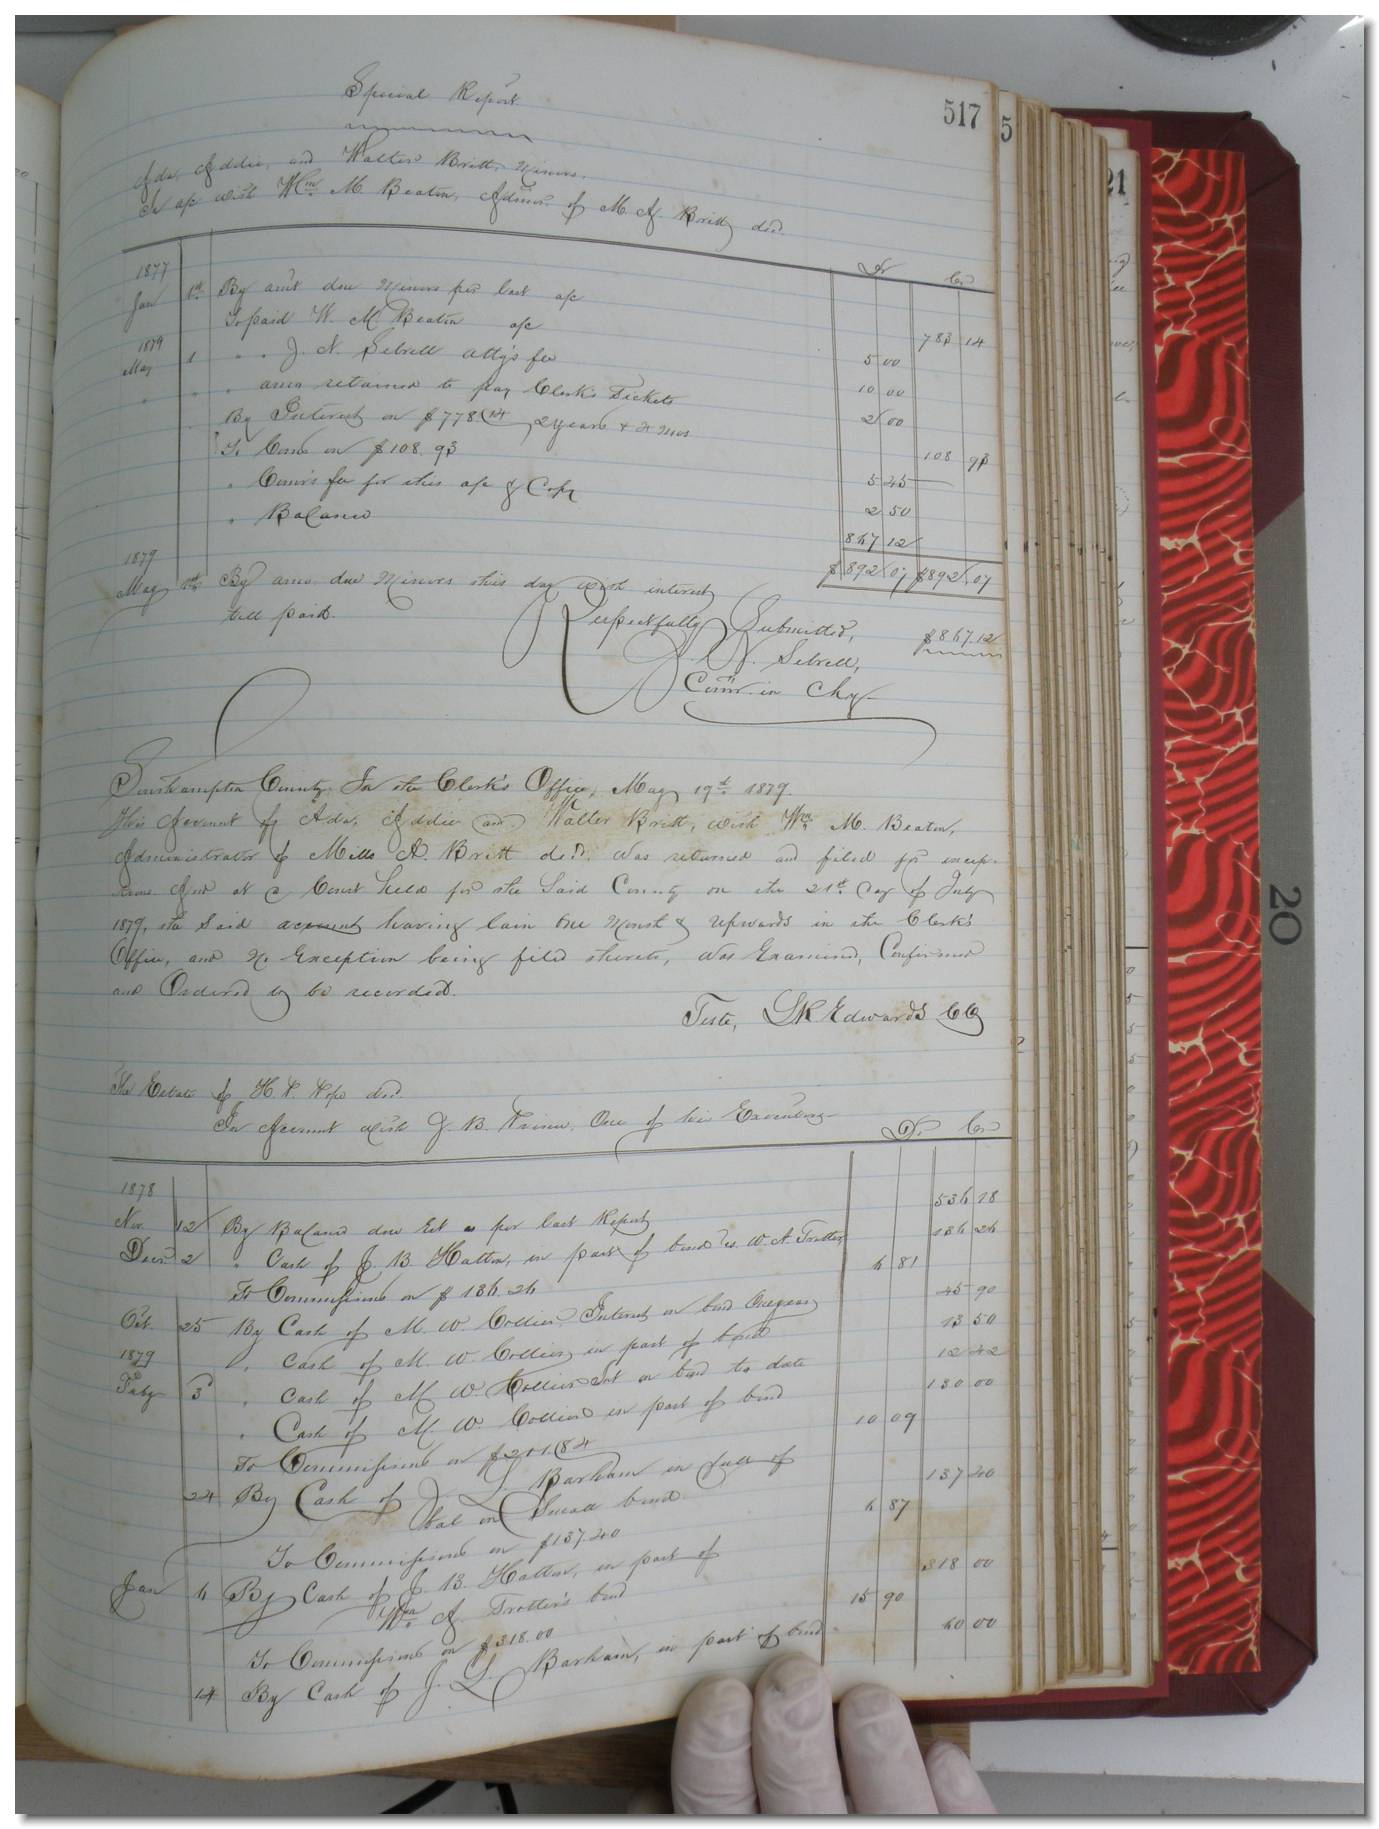 517
5
21
Special Report.
Ada, Addie, and Walter Britt, Minors.
In a/c with Wm. M. Beaton, Admr. of M. A. Britt decd.
Dr Cr
1877
Jan 1st By amt due Minors per last a/c 783 14
To paid W. M. Beaton a/c 5 00
1879
May 1 " " J. N. Sebrell atty's fee 10 00
" " " amo retained to pay Clerk's Tickets 2 00
" By Interest on $778.14, 2 years & 4 mos 108 93
To Coms on $108.93 5 45
" Comr's fee for this a/c & Copy 2 50
" Balance 867 12
$892 07 $892 07
1879
May 1st By amo due Minors this day with interest
till paid. $867.12
Respectfully Submitted,
J. N. Sebrell,
Comr. in Chy
Southampton County: In the Clerk's Office, May 19th 1879.
This Account of Ada, Addie and Walter Britt, with Wm. M. Beaton,
Administrator of Mills A. Britt decd. was returned and filed for excep-
tions. And at a Court held for the Said County on the 21st day of July
1879, the Said account having lain one Month & upwards in the Clerk's
Office, and no Exception being filed thereto, was Examined, Confirmed
and Ordered to be recorded.
Teste, L R Edwards CC
The Estate of H. P. Pope decd.
In Account with J. B. Prince, One of his Executors
Dr. Cr
1878
Nov. 12 By Balance due Est as per last Report 536 28
Decr 2 " Cash of J. B. Hatton, in part of bond vs. W. A. Trotter 136 26
To Commissions on $136.26 6 81
Oct. 25 By Cash of M. W. Collier Interest on bond One year 45 90
1879 " Cash of M. W. Collier, in part of bond 13 50
Feby 3 " Cash of M. W. Collier Int on bond to date 12 42
" Cash of M. W. Collier in part of bond 130 00
To Commissions on $201.84 10 09
24 By Cash of J. L. Barham in full of
bal on Small bond 137 40
To Commissions on $137.40 6 87
Jan 6 By Cash of J. B. Hatton, in part of
Wm. A. Trotter's bond 318 00
To Commissions on $318.00 15 90
14 By Cash of J. L. Barham, in part of bond 60 00
20